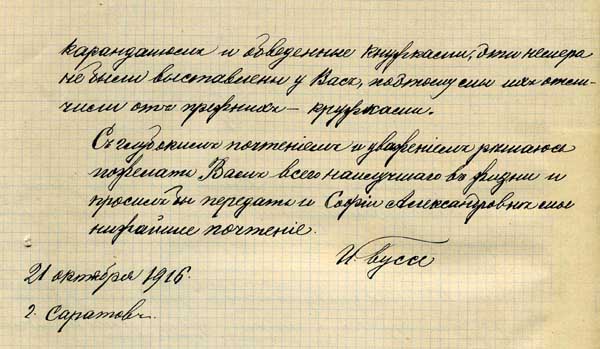 карандашомъ и обведенные кружками; эти номера
не были выставлены у Васъ, поэтому мы ихъ отли-
чили отъ прежнихъ – кружками.
Съ глубокимъ почтеніемъ и уваженіемъ рѣшаюсь
пожелать Вамъ всего наилучшаго въ жизни и
просилъ бы передать и Софіи Александровнѣ мое
нижайшее почтеніе.
И. Буссе
21 октября 1916.
г. Саратовъ.